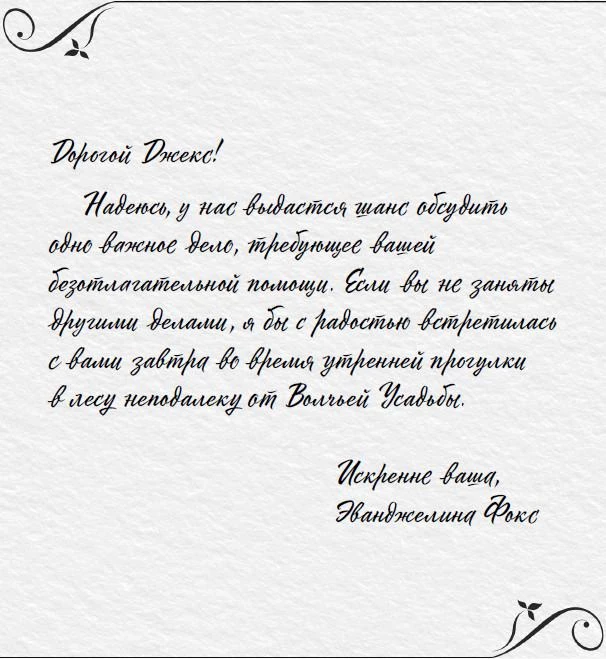 Дорогой Джекс!
Надеюсь, у нас выдастся шанс обсудить
одно важное дело, требующее вашей
безотлагательной помощи. Если вы не заняты
другими делами, я бы с радостью встретилась
с вами завтра во время утренней прогулки
в лесу неподалеку от Волчьей Усадьбы.
Искренне ваша,
Эванджелина Фокс